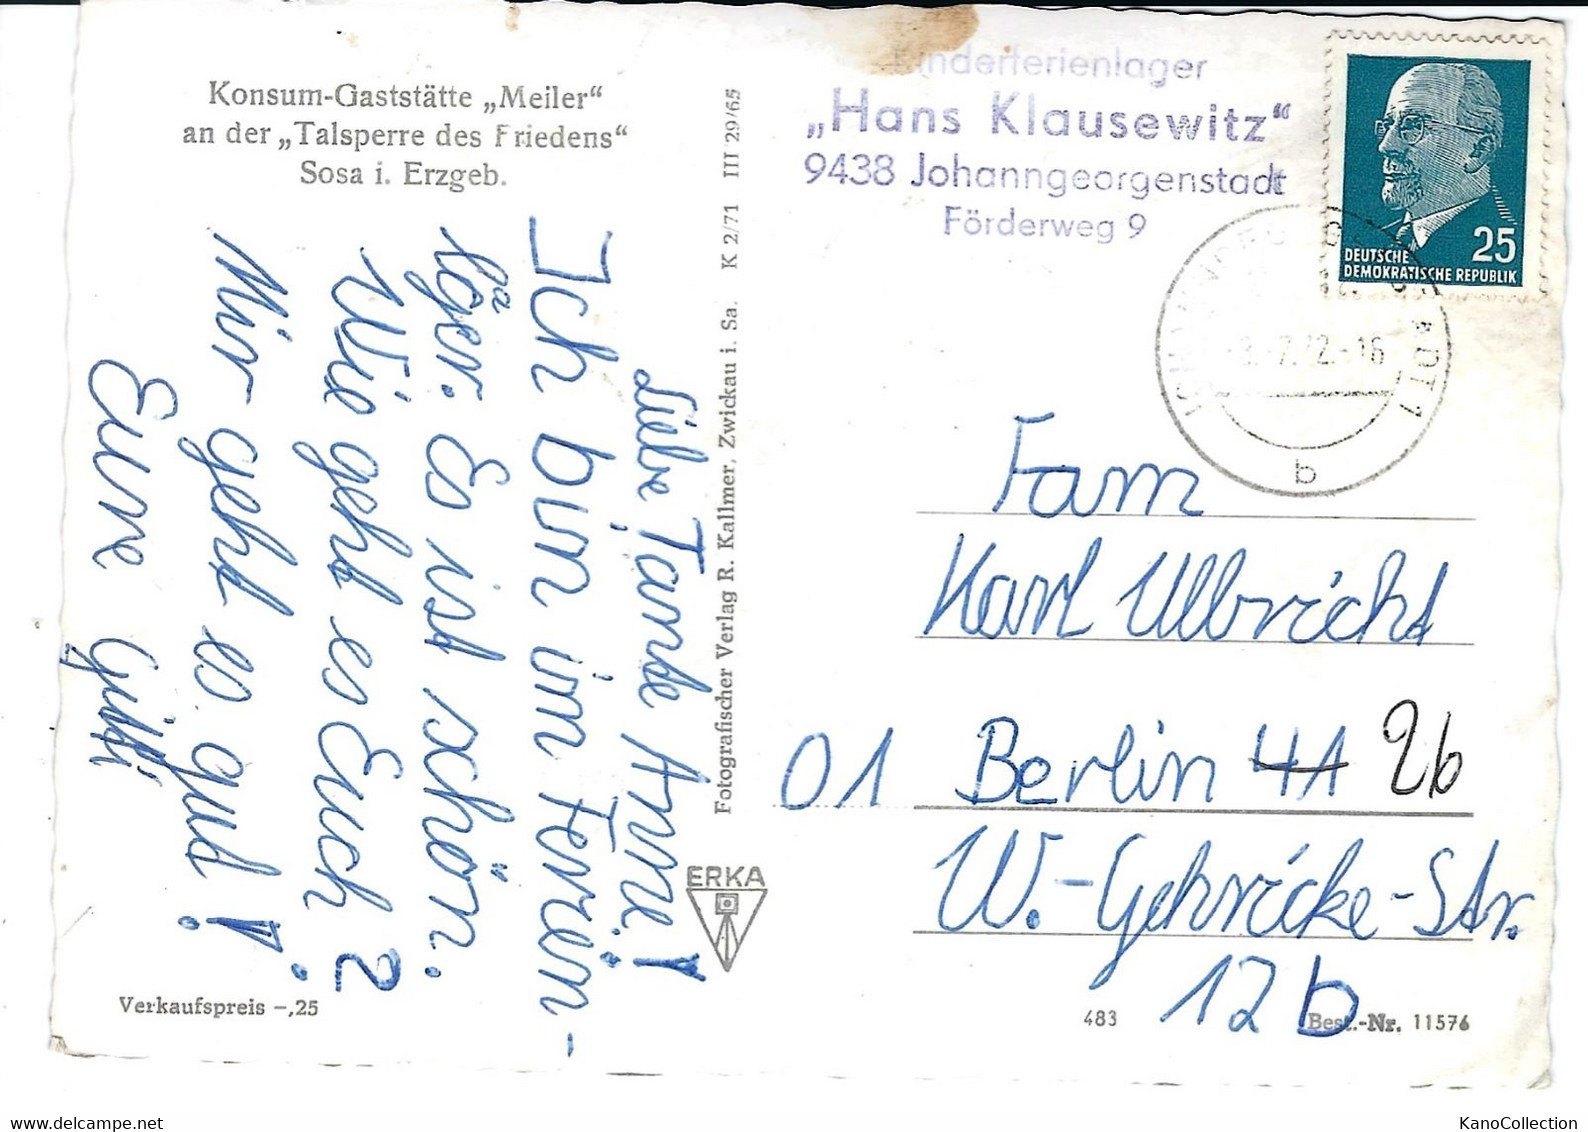 Konsum-Gaststätte „Meiler“
an der „Talsperre des Friedens“
Sosa i. Erzgeb.
Liebe Tante Anne!
Ich bin im Ferien-
läger. Es ist schön.
Wie geht es Euch?
Mir geht es gut!
Eure Gitti
Verkaufspreis -,25
Fotografischer Verlag R. Kallmer, Zwickau i. Sa. K 2/71 III 29/65
ERKA
Kinderferienlager
„Hans Klausewitz“
9438 Johanngeorgenstadt
Förderweg 9
25
DEUTSCHE
DEMOKRATISCHE REPUBLIK
7.72-16
b
Fam
Karl Ulbricht
01 Berlin 41 26
W.-Gehricke-Str.
12b
483
Best.-Nr. 11576
KanoCollection